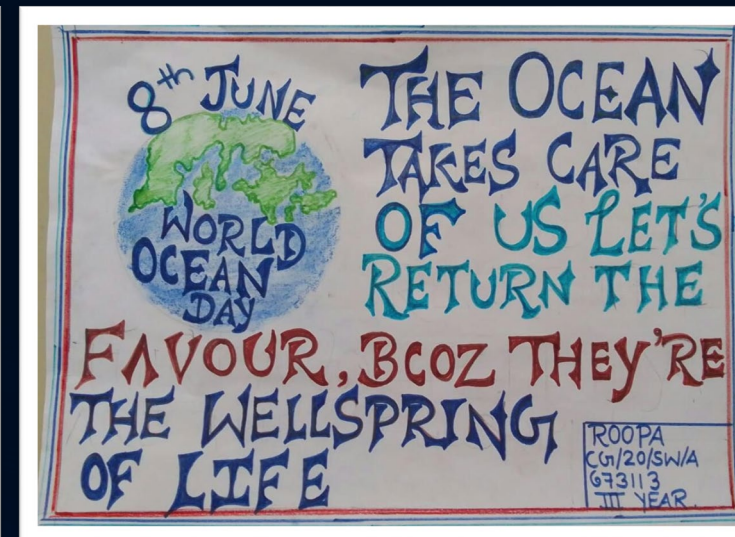 8th JUNE
WORLD
OCEAN
DAY
THE OCEAN
TAKES CARE
OF US LET'S
RETURN THE
FAVOUR, BCOZ THEY'RE
THE WELLSPRING
OF LIFE
ROOPA
CG/20/SW/A
673113
III YEAR